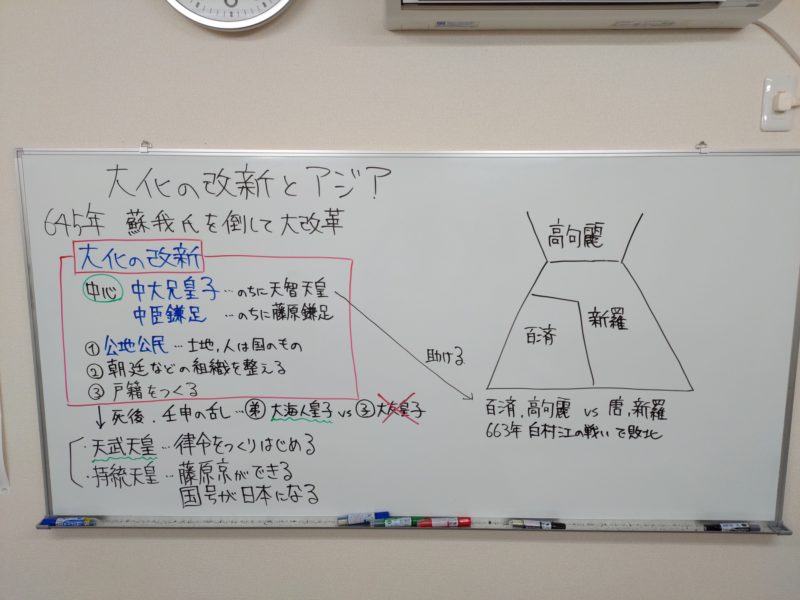 大化の改新とアジア
645年 蘇我氏を倒して大改革
大化の改新
中心 中大兄皇子…のちに天智天皇
中臣鎌足 …のちに藤原鎌足
① 公地公民…土地,人は国のもの
② 朝廷などの組織を整える
③ 戸籍をつくる
↓死後.壬申の乱…弟大海人皇子 vs 子大友皇子
・天武天皇…律令をつくりはじめる
・持統天皇…藤原京ができる
国号が日本になる
助ける
高句麗
百済
新羅
百済,高句麗 vs 唐,新羅
663年 白村江の戦いで敗北